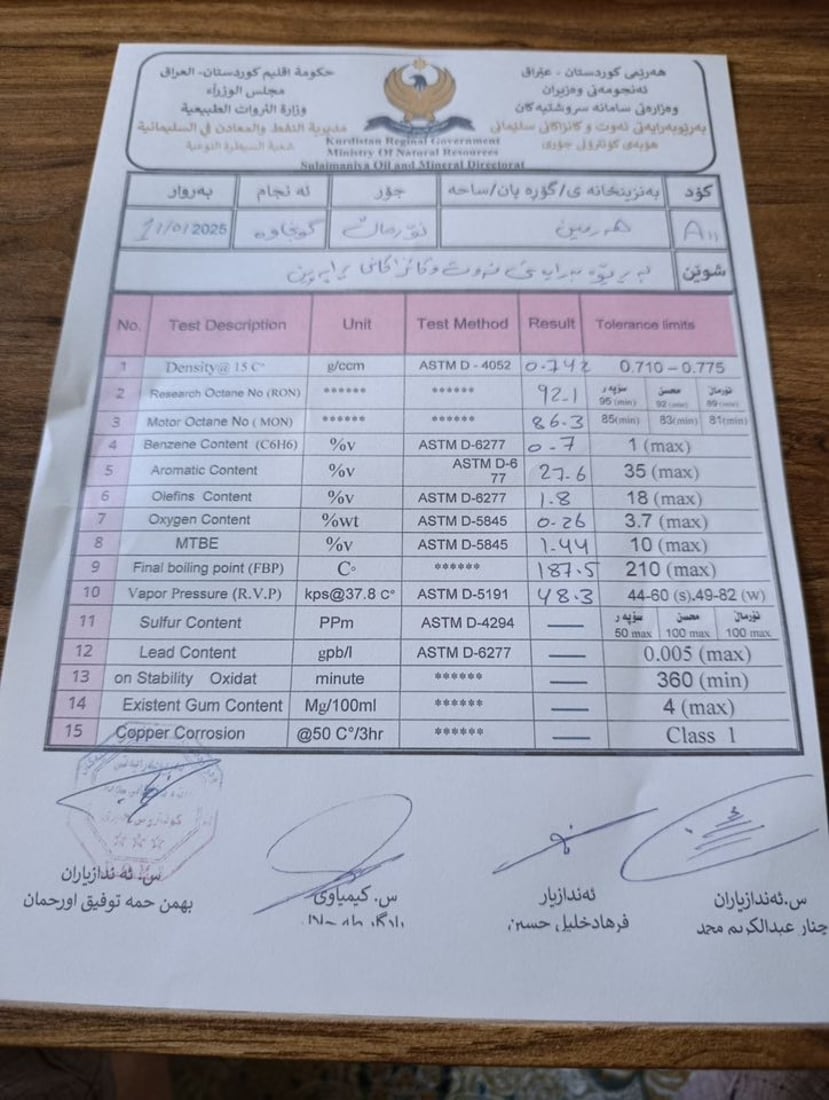 هەرێمی کوردستان - عێراق
ئەنجومەنی وەزیران
وەزارەتی سامانە سروشتیەکان
بەرێوبەرایەتی نەوت و کانزاکانی سلێمانی
هۆبەی کۆنترۆڵی جۆری
حكومة اقليم كوردستان- العراق
مجلس الوزراء
وزارة الثروات الطبيعية
مديرية النفط والمعادن في السليمانية
شعبة السيطرة النوعية
Kurdistan Reginal Government
Ministry Of Natural Resources
Sulaimaniya Oil and Mineral Directorat
کۆد بەنزینخانە ی/گۆرە پان/ساحە جۆر ئە نجام بەروار
A11 هەرمین نۆرماڵ گونجاوە 11/01/2025
شوێن
No. Test Description Unit Test Method Result Tolerance limits
1 Density@ 15 C° g/ccm ASTM D - 4052 0.742 0.710 – 0.775
2 Research Octane No (RON) ****** ****** 92.1 سۆپە ر 95 (min) محسن 92 (min) نۆرماڵ 89 (min)
3 Motor Octane No ( MON) ****** ****** 86.3 85(min) 83(min) 81(min)
4 Benzene Content (C6H6) %v ASTM D-6277 0.7 1 (max)
5 Aromatic Content %v ASTM D-6 77 27.6 35 (max)
6 Olefins Content %v ASTM D-6277 1.8 18 (max)
7 Oxygen Content %wt ASTM D-5845 0.26 3.7 (max)
8 MTBE %v ASTM D-5845 1.44 10 (max)
9 Final boiling point (FBP) C° ****** 187.5 210 (max)
10 Vapor Pressure (R.V.P) kps@37.8 C° ASTM D-5191 48.3 44-60 (s).49-82 (w)
11 Sulfur Content PPm ASTM D-4294 — سۆپە ر 50 max محسن 100 max نۆرماڵ 100 max
12 Lead Content gpb/l ASTM D-6277 — 0.005 (max)
13 on Stability Oxidat minute ****** — 360 (min)
14 Existent Gum Content Mg/100ml ****** — 4 (max)
15 Copper Corrosion @50 C°/3hr ****** — Class 1
س.ئەندازیاران
چنار عبدالکریم محمد
ئەندازیار
فرهاد خلیل حسین
س. کیمیاوی
س. ئە ندازیاران
بهمن حمه توفیق اورحمان